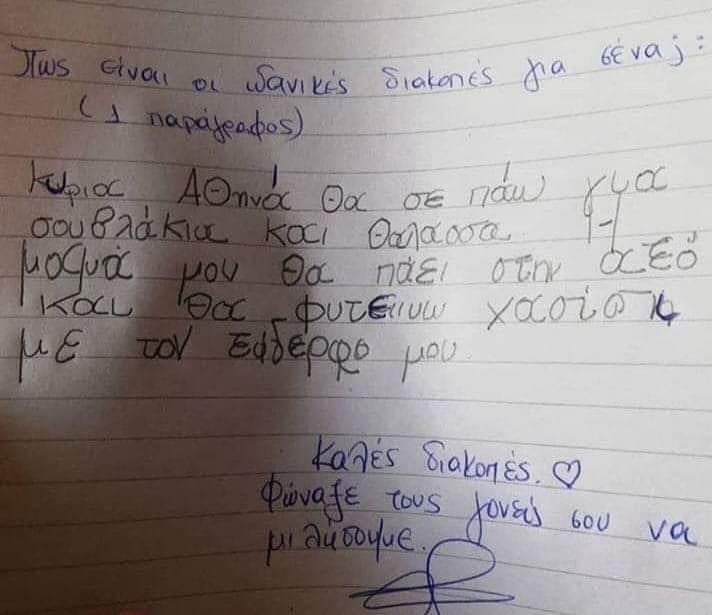 Πως είναι οι ιδανικές διακοπές για σένα;:
(1 παράγραφος)
Κυρια Αθηνά θα σε πάω γμα
σουβλάκια και θαλασσα. Η
μαμμά μου θα πάει στην αεό
και θα φυτειυω χασίσι
με τον εφδερφο μου
Καλές διακοπές. ♡
Φώναξε τους γονείς σου να
μιλήσουμε.